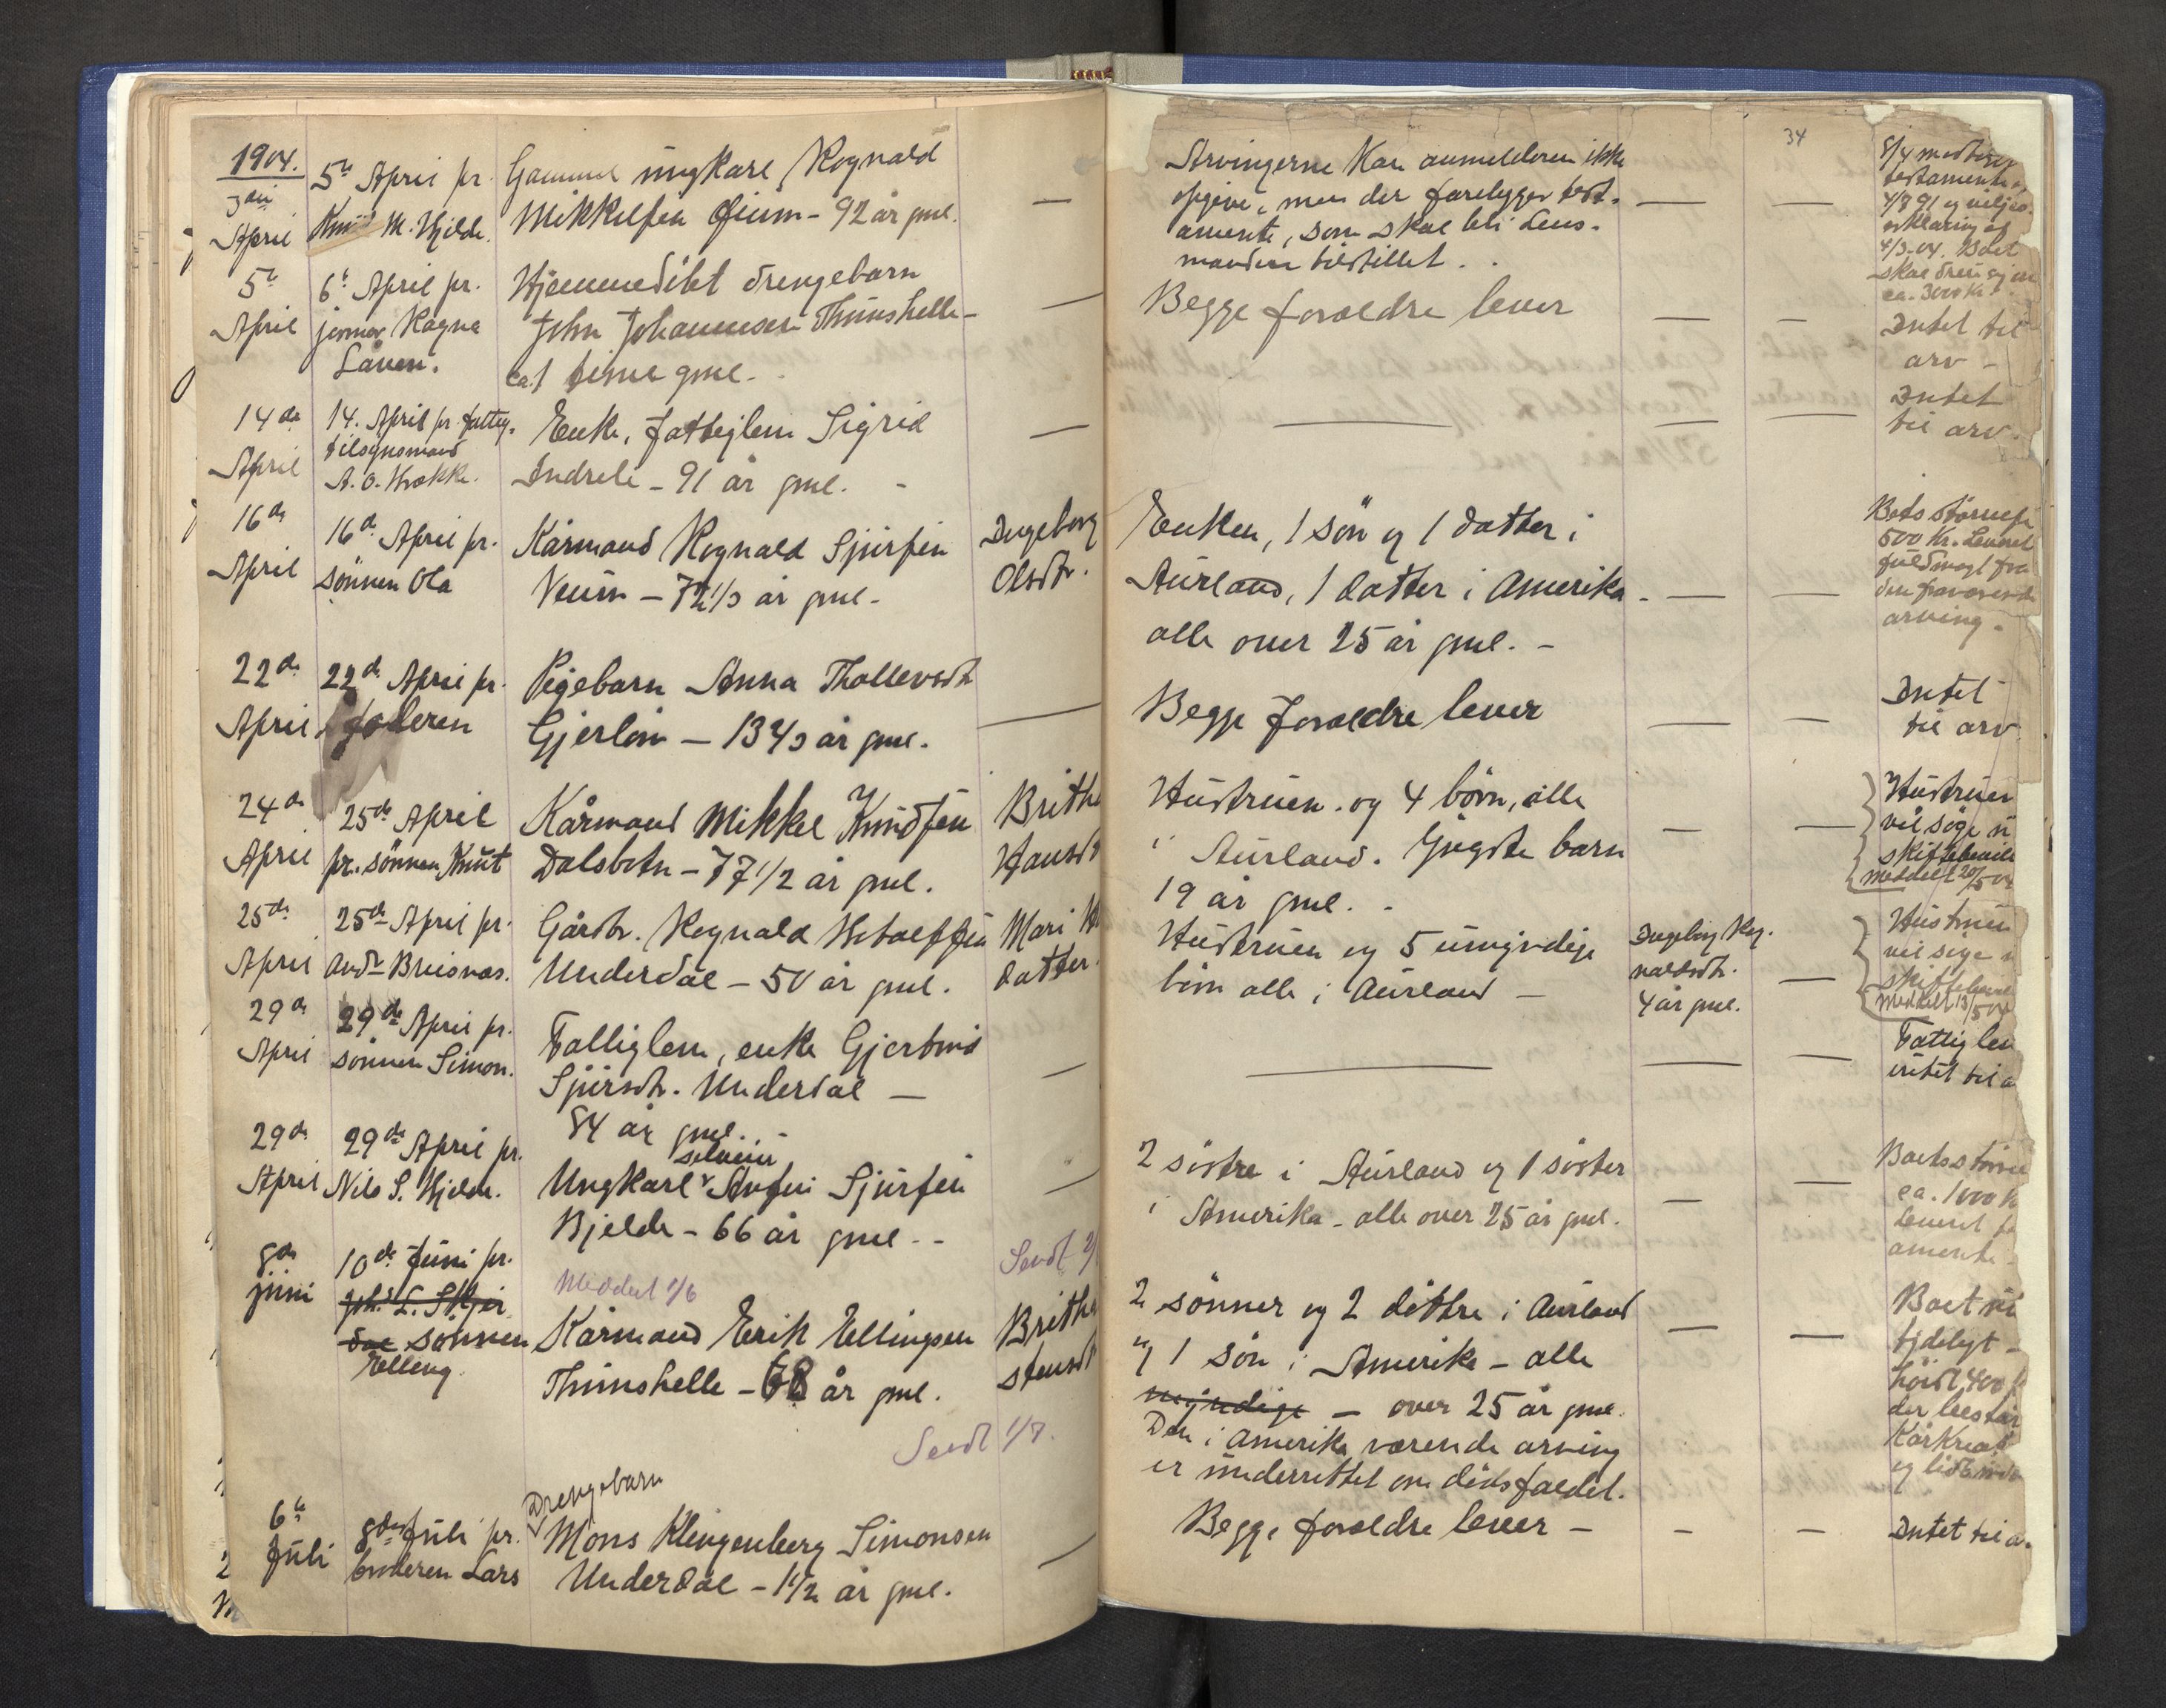 1904.
3die
April
5te April pr.
Knud M. Hjelde.
Gammel ungkarl, Rognald
Mikkelsen Øium - 92 år gml.
—
Arvingerne kan anmelderen ikke
opgive, men der forelygger test-
amente, som skal bli Lens-
manden tilstillet.
—
—
34
8/4
testamente
4/3 04. Boet
ca. 3000 kr.
5te
April
6te April pr.
jormor Ragna
Låven.
Hjemmedöbt drengebarn
John Johannesen Thunshelle -
ca. 1 time gml.
—
Begge foreldre lever
—
—
Intet til
arv -
14de
April
14. April pr. fattig-
tilsynsmand
A. O. Brekke.
Enke, fattiglem Sigrid
Indreli - 91 år gml. -
—
—
—
—
Intet
til arv.
16de
April
16de April pr.
sönnen Ola
Kårmand Rognald Sjursen
Veum - 72 1/3 år gml.
Ingeborg
Olsdtr.
Enken, 1 sön og 1 datter i
Aurland, 1 datter i Amerika -
alle over 25 år gml. -
—
—
Bots störrelse
500 kr. Leveret
fuldmagt fra
den fraværende
arving.
22de
April
22de April pr.
faderen
Pigebarn Anna Thollevsdtr
Gjerlöw - 13 2/3 år gml.
—
Begge foreldre lever
—
—
Intet
til arv
24de
April
25de April
pr. sönnen Knut
Kårmand Mikkel Knudsen
Dalsbotn - 77 1/2 år gml.
Brithe
Hansdtr
Hustruen og 4 börn, alle
i Aurland. Yngste barn
19 år gml. -
—
—
Hustruen
vil söge u
skiftebevill
meddelt 20/5 04
25de
April
25de April pr.
Andr. Breisnæs.
Gårdbr. Rognald Botolfsen
Underdal - 50 år gml.
Mari H
datter.
Hustruen og 5 umyndige
börn alle i Aurland -
Ingeborg Rog-
naldsdtr.
4 år gml.
—
Hustruen
vil söge u
skiftebevill
Meddelt 13/5 04
29de
April
29de April pr.
sönnen Simon.
Fattiglem, enke Gjertrud
Sjursdtr. Underdal -
84 år gml. -
—
—
—
—
Fattiglem
intet til a
29de
April
29de April pr.
Nils S. Hjelde.
selveier
Ungkarl v Anfin Sjursen
Bjelde - 66 år gml. -
—
2 söstre i Aurland og 1 söster
i Amerika - alle over 25 år gml.
—
—
Boets större
ca. 1000 k
Leveret
amente
Meddelt 1/6
Sendt
8de
juni
10de Juni pr.
Joh.s L. Skjer
dal sönnen
Elling
Kårmand Erik Ellingsen
Thunshelle - 68 år gml.
Brithe
Stensdt
2 sönner og 2 döttre i Aurland
og 1 sön i Amerika - alle
myndige - over 25 år gml.
Den i Amerika værende arving
er underrettet om dödsfaldet.
—
—
Boet
höist 400 k
Sendt 1/7.
6te
Juli
8de Juli pr.
broderen Lars
Drengebarn
Mons Klingenberg Simonsen
Underdal - 1 1/2 år gml.
—
Begge foreldre lever -
—
—
Intet til a.